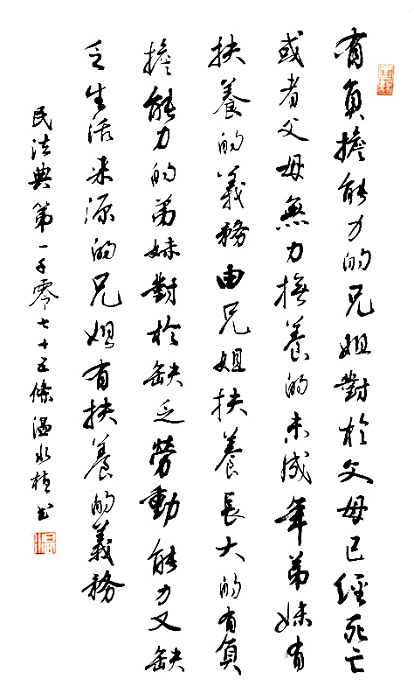 有負擔能力的兄姐對於父母已經死亡
或者父母無力撫養的未成年弟妹有
扶養的義務由兄姐扶養長大的有負
擔能力的弟妹對於缺乏勞動能力又缺
乏生活来源的兄姐有扶養的義務
民法典第一千零七十五條溫书